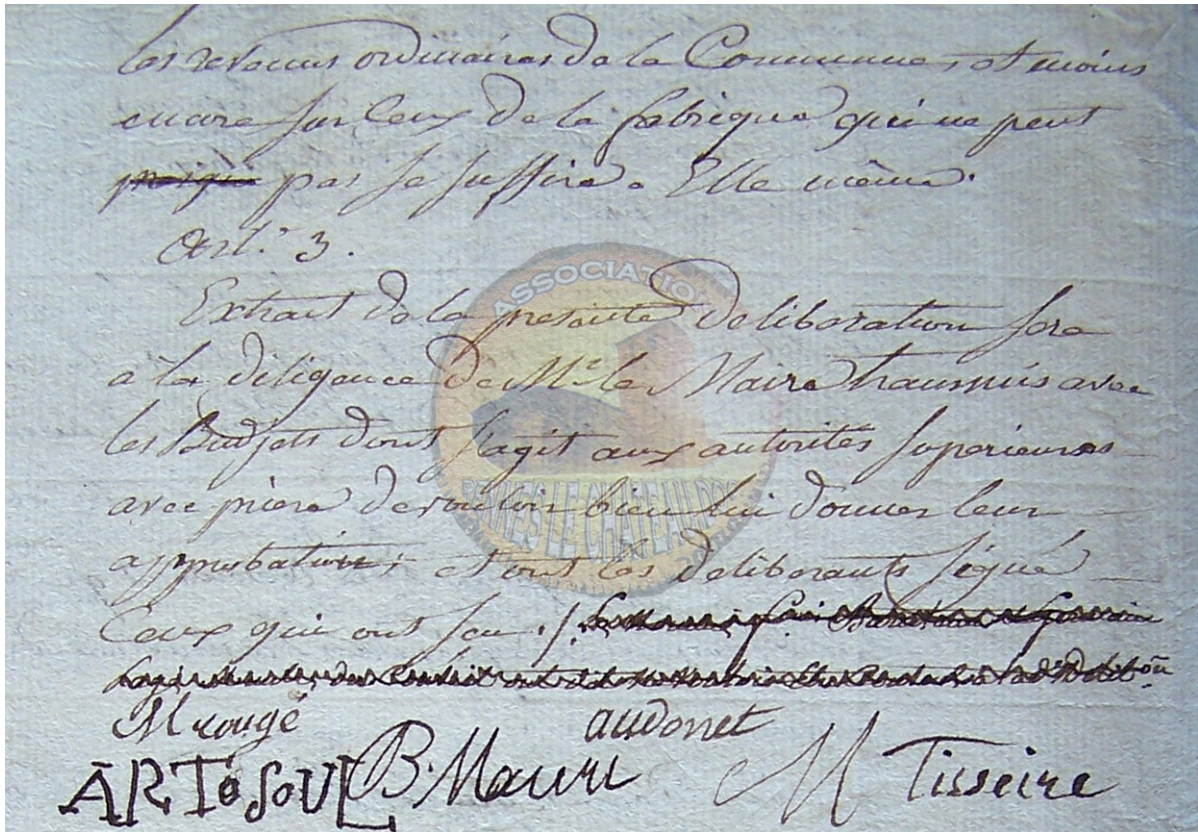 les revenus ordinaires de la Commune, et moins
encore sur Ceux de la fabrique qui ne peut
pas se suffire a Elle même.
Art. 3.
Extrait de la presente deliberation sera
à la diligence de Mr le Maire transmis avec
les Budjets dont s'agit aux autorités superieures
avec priere de vouloir bien lui donner leur
approbation; et ont les deliberants signé
Ceux qui ont seu ./.
M rougé
audonet
ARTOSOUL B. Mauri
M Tisseire
ASSOCIATION
RENNES LE CHATEAU.DOC